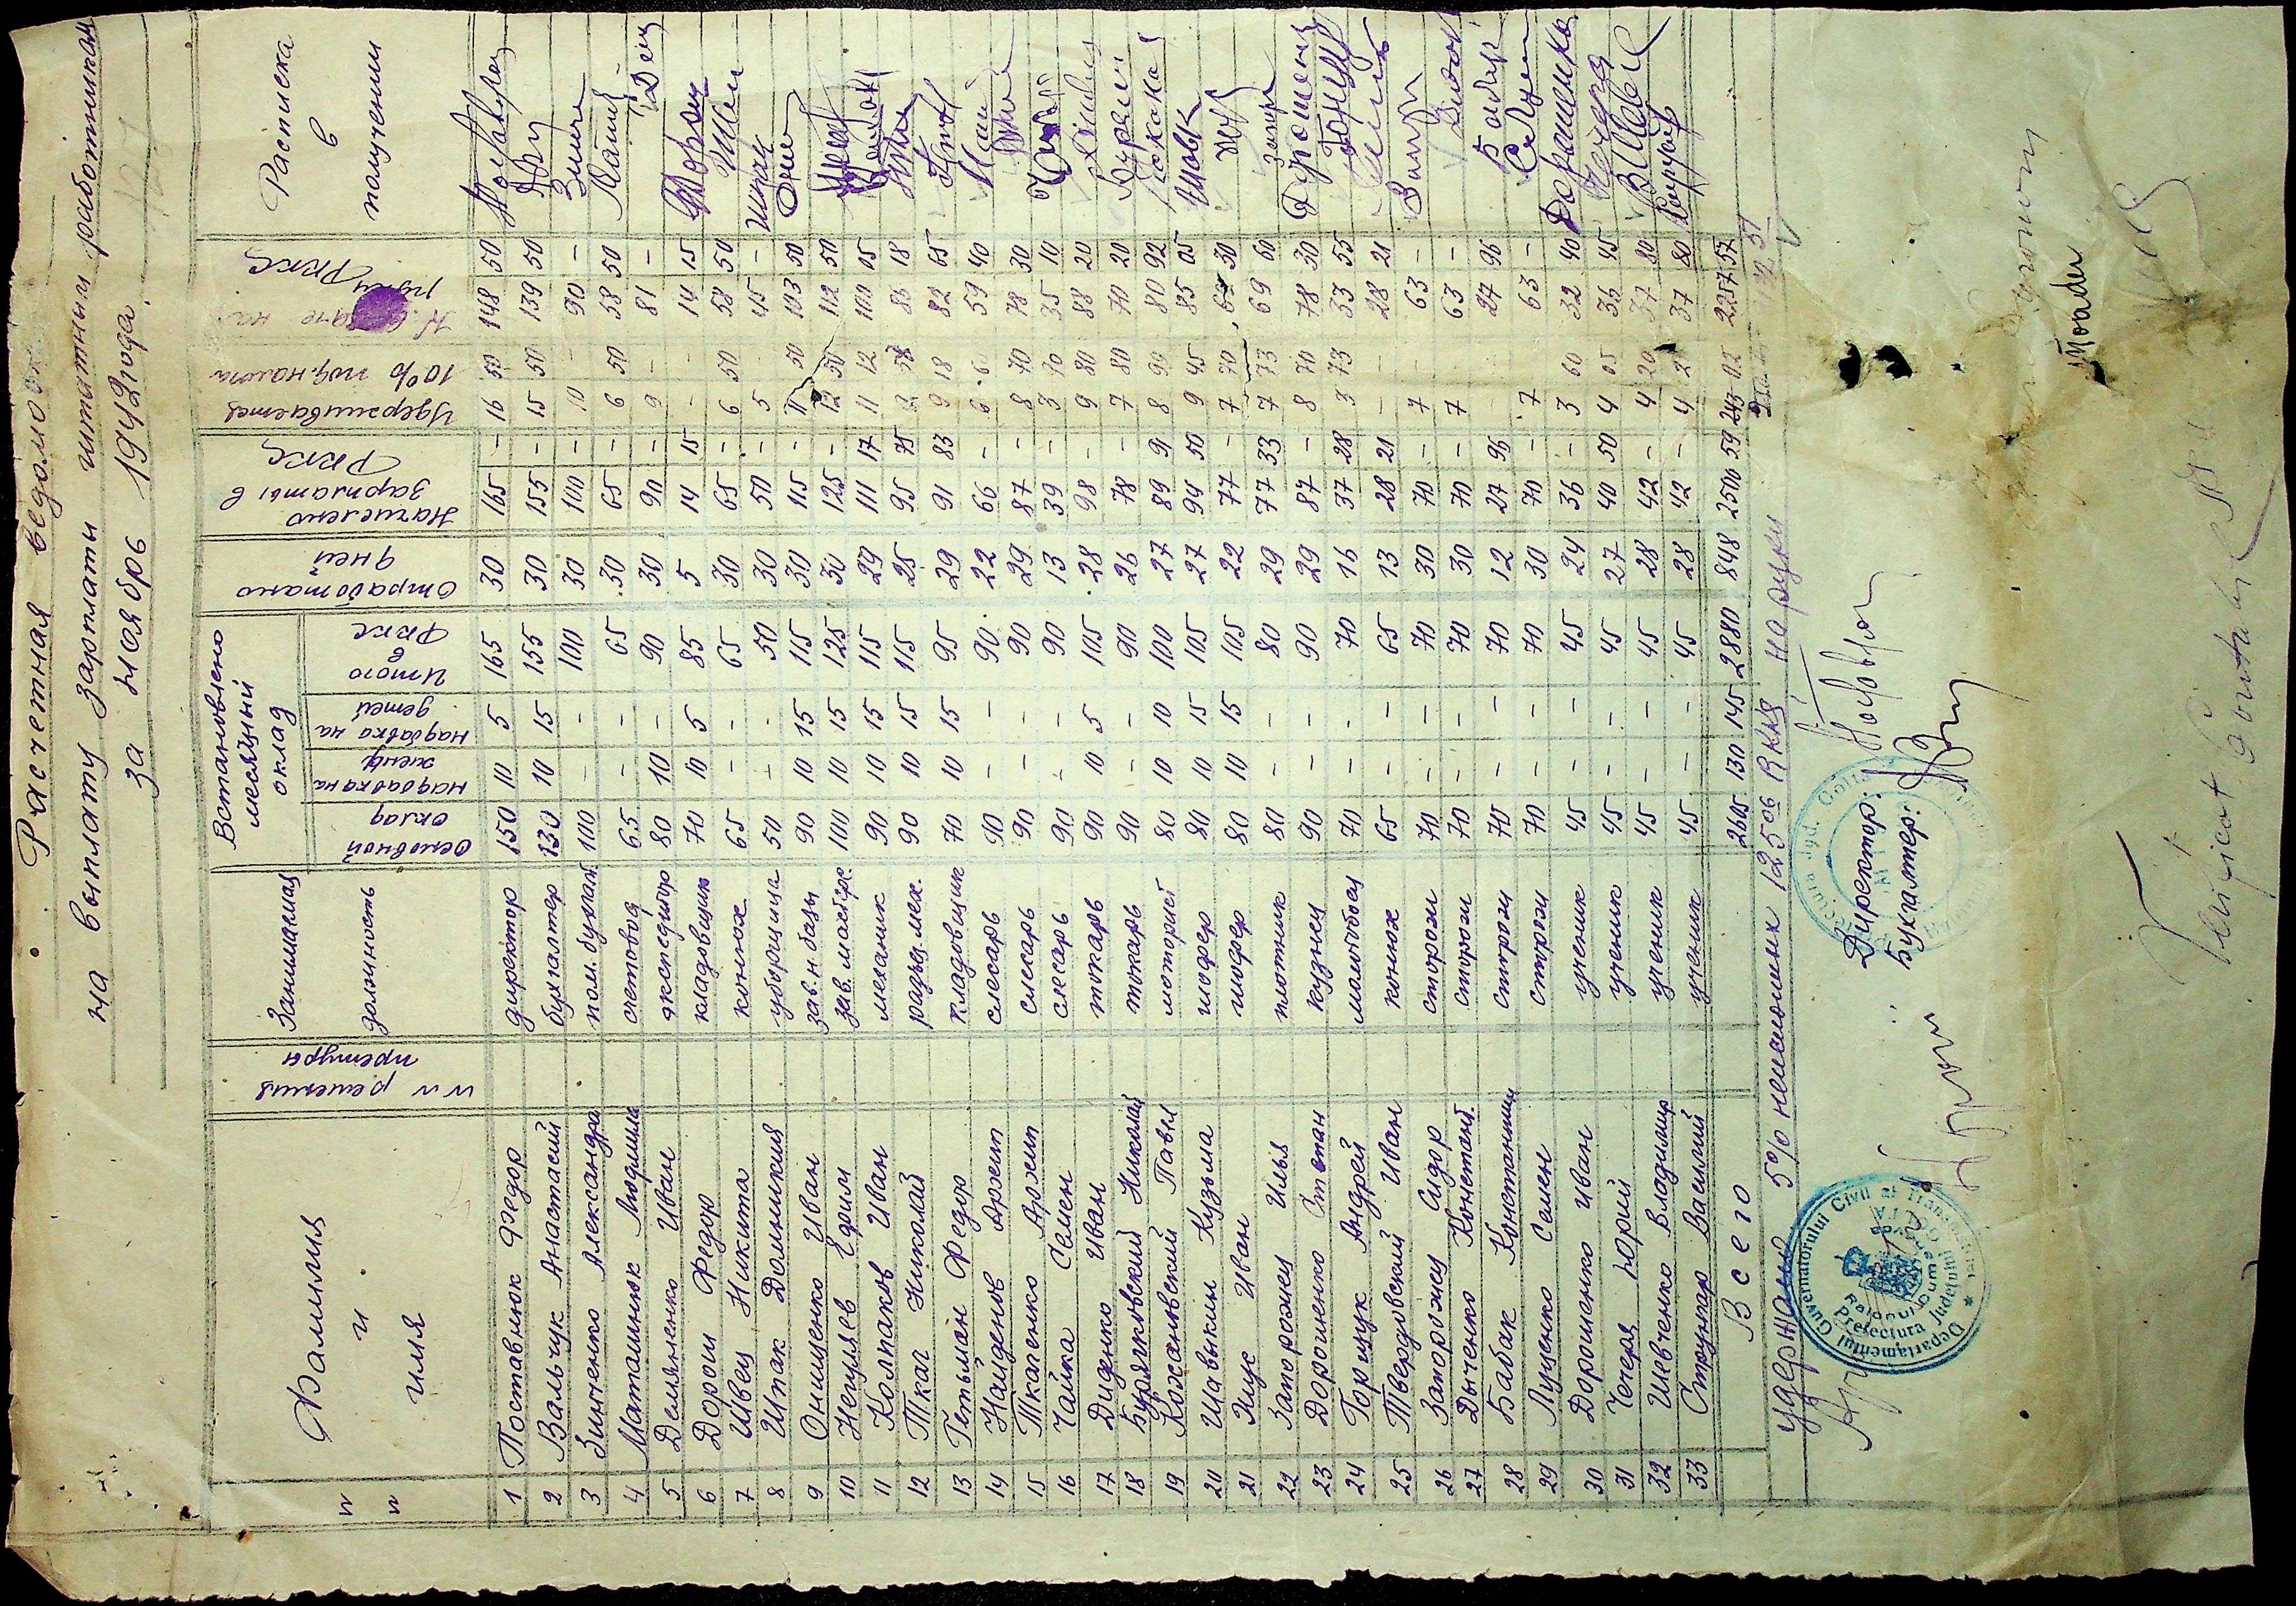 Расчетная ведомость
на выплату зарплаты штатным работникам
за ноябрь 1942 года
№ № | Фамилия и имя | № № решения претуры | Занимаемая должность | Встановлено месячный оклад | Отработано дней | Начислено зарплаты в РККС | Удерживается 10% под.налога | К выдаче на руки РККС | Расписка в получении
Основной оклад | надбавка на жену | надбавка на детей | Итого в РККС
1 Поставнюк Федор директор 150 10 5 165 30 165 – 16 50 148 50
2 Вальчук Анастасий бухгалтер 130 10 15 155 30 155 – 15 50 139 50
3 Зинченко Александра пом. бухгалт. 100 – – 100 30 100 – 10 – 90 –
4 Маташнюк Людмила счетовод 65 – – 65 30 65 – 6 50 58 50
5 Демяненко Иван экспедитор 80 10 – 90 30 90 – 9 – 81 –
6 Дорош Федор кладовщик 70 10 5 85 5 14 15 – – 14 15
7 Швец Никита конюх 65 – – 65 30 65 – 6 50 58 50
8 Шпак Доминикия уборщица 50 – – 50 30 50 – 5 – 45 –
9 Онищенко Иван зав.н.базы 90 10 15 115 30 115 – 11 50 103 50
10 Негуляев Ефим зав. мастерс. 100 10 15 125 30 125 – 12 50 112 50
11 Колпаков Иван механик 90 10 15 115 29 111 17 11 12 100 05
12 Ткач Николай разъез.мех. 90 10 15 115 25 95 75 18
13 Гетьман Федор кладовщик 70 10 15 95 29 91 83 9 18 82 65
14 Найденов Архип слесарь 90 – – 90 22 66 – 6 6 59 40
15 Ткаченко Архип слесарь 90 – – 90 29 87 – 8 70 78 30
16 Чайка Семен слесарь 90 – – 90 13 39 – 3 90 35 10
17 Диденко Иван токарь 90 10 5 105 28 98 – 9 80 88 20
18 Бурячковский Николай токарь 90 – – 90 26 78 – 7 80 70 20
19 Кохановский Павел моторист 80 10 10 100 27 89 91 8 99 80 92
20 Шавыкин Кузьма шофер 80 10 15 105 27 94 50 9 45 85 05
21 Жук Иван шофер 80 10 15 105 22 77 – 7 70 69 30
22 Запорожец Илья плотник 80 – – 80 29 77 33 7 73 69 60
23 Дорошенко Степан кузнец 90 – – 90 29 87 – 8 70 78 30
24 Горщук Андрей молотобоец 70 – – 70 16 37 28 3 73 33 55
25 Твердовский Иван конюх 65 – – 65 13 28 21 – – 28 21
26 Запорожец Сидор сторож 70 – – 70 30 70 – 7 – 63 –
27 Дьяченко Констант. сторож 70 – – 70 30 70 – 7 – 63 –
28 Бабак Константин сторож 70 – – 70 12 27 96 27 96
29 Луценко Семен сторож 70 – – 70 30 70 – 7 – 63 –
30 Дорошенко Иван ученик 45 – – 45 24 36 – 3 60 32 40
31 Чечеря Юрий ученик 45 – – 45 27 40 50 4 05 36 45
32 Шевченко Владимир ученик 45 – – 45 28 42 – 4 20 37 80
33 Струнгар Василий ученик 45 – – 45 28 42 – 4 2 37 80
Всего 2605 130 145 2880 848 2500 59 243 02 2257 57
удержано 5% пенсионных 125 06 RKKS на руки
Директор:
Бухгалтер:
Guvernatorului Civil al Transnistriei
Departamentul
Prefectura Judetului
Verificat contabil